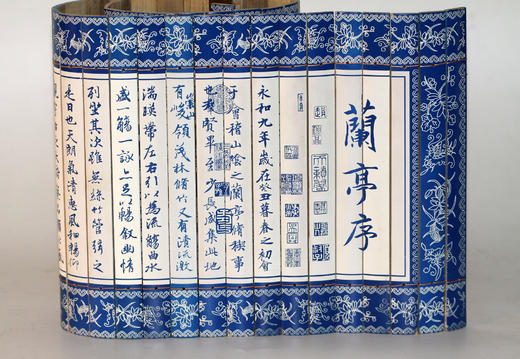 蘭亭序
永和九年歲在癸丑暮春之初會
于會稽山陰之蘭亭脩禊事
也羣賢畢至少長咸集此地
有崇山峻領茂林脩竹又有清流激
湍暎帶左右引以為流觴曲水
盛一觴一詠亦足以暢叙幽情
列坐其次雖無絲竹管弦之
是日也天朗氣清惠風和暢仰